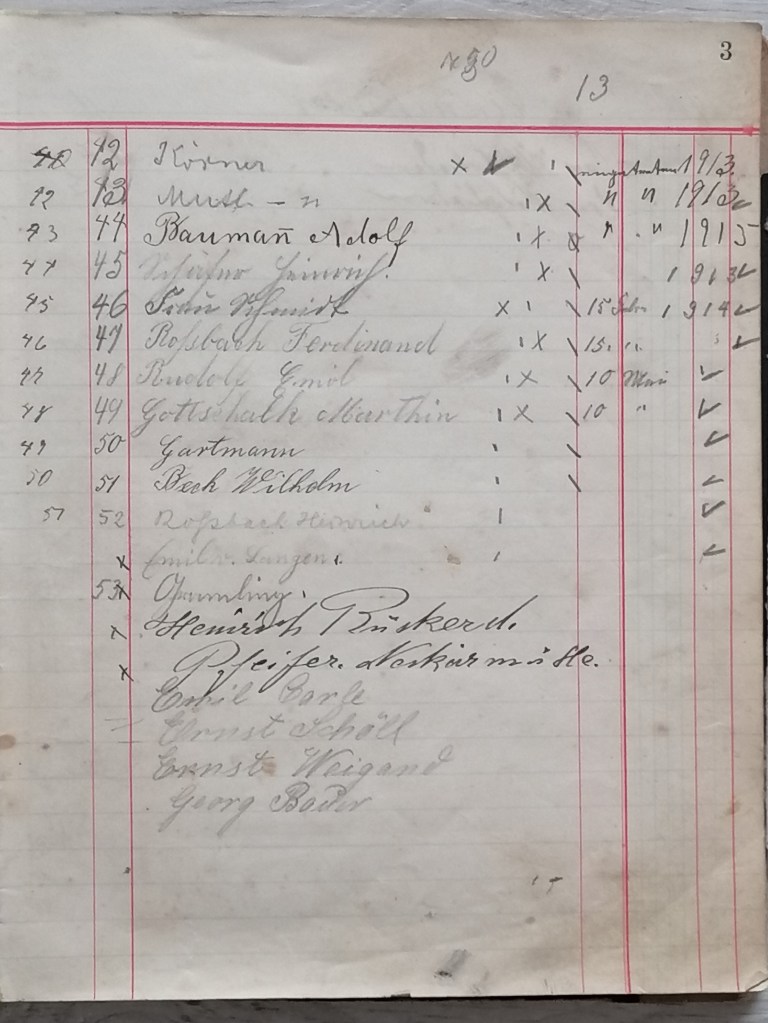 3
13
42 Körner x ✓ ' \ 1913.
42 43 ' x \ " " 1913 ✓
43 44 Baumañ Adolf ' x " " 1915
44 45 Schäfer Heinrich. ' x \ 1913 ✓
45 46 Frau Schmidt x ' \ 15 1914 ✓
46 47 Roßbach Ferdinand ' x \ 15. " ✓
47 48 Rudolf Emil ' x \ 10 Mai ✓
48 49 Gottschalk Marthin ' x \ 10 " ✓
49 50 Gartmann ' \ ✓
50 51 Bech Wilhelm ' \ ✓
51 52 Roßbach Heinrich ' ✓
x Emil v. Langen. ' ✓
53 x
x Heinrich Rückerd.
x Pfeifer. Neckarmühle.
Emil
Ernst Schöll
Ernst Weigand
Georg Bader